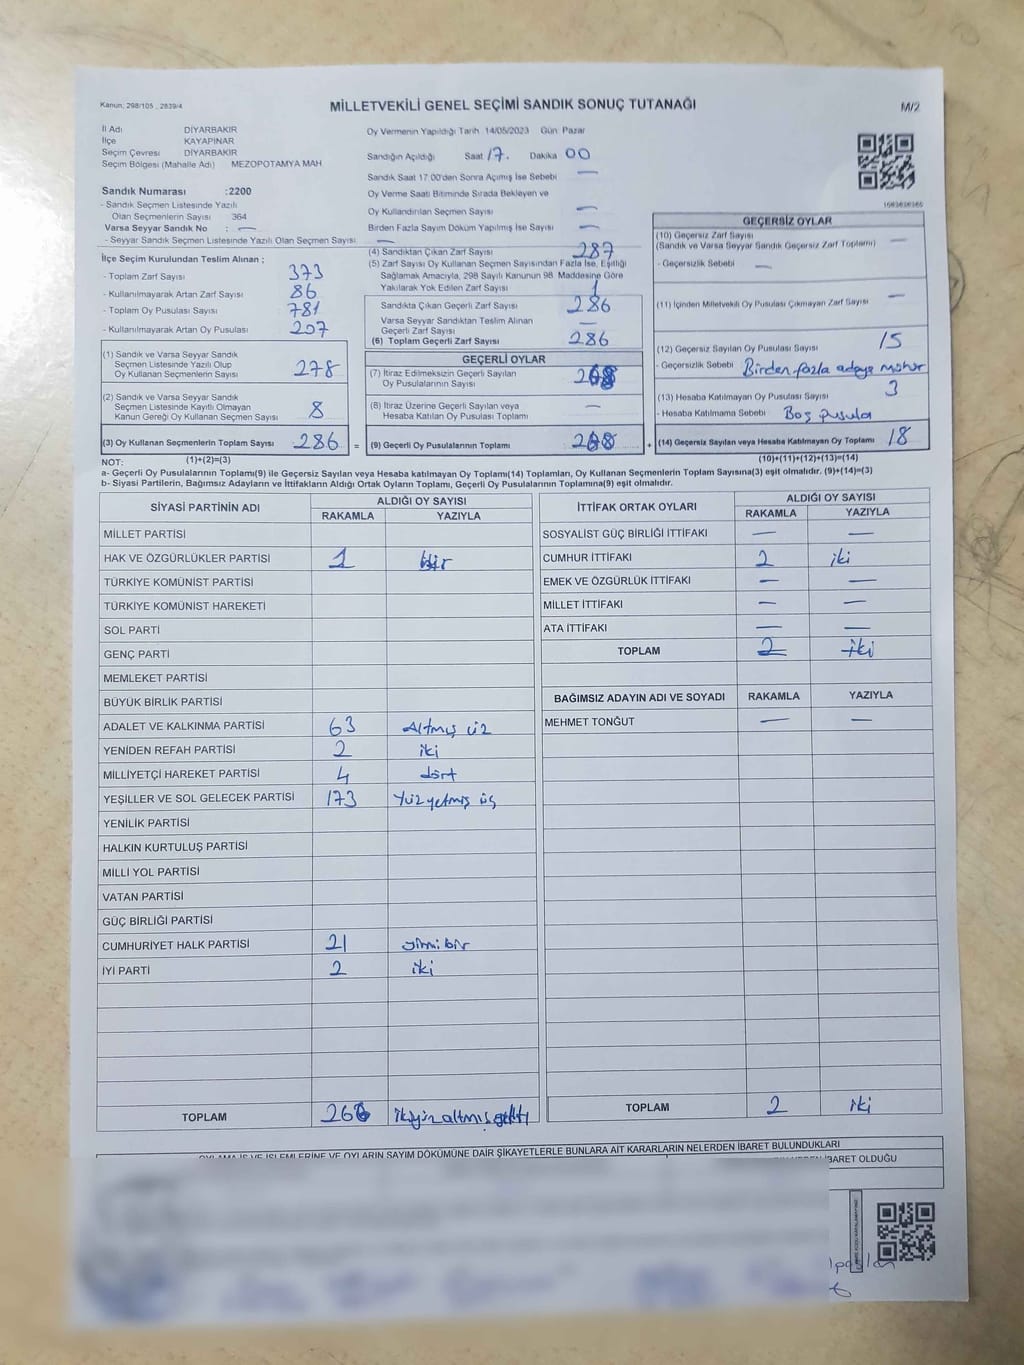 Kanun; 298/105 , 2839/4
MİLLETVEKİLİ GENEL SEÇİMİ SANDIK SONUÇ TUTANAĞI
M/2
İl Adı DİYARBAKIR
İlçe KAYAPINAR
Seçim Çevresi DİYARBAKIR
Seçim Bölgesi (Mahalle Adı) MEZOPOTAMYA MAH
Sandık Numarası :2200
- Sandık Seçmen Listesinde Yazılı
Olan Seçmenlerin Sayısı 364
Varsa Seyyar Sandık No : —
- Seyyar Sandık Seçmen Listesinde Yazılı Olan Seçmen Sayısı —
Oy Vermenin Yapıldığı Tarih 14/05/2023 Gün Pazar
Sandığın Açıldığı Saat 17. Dakika 00
Sandık Saat 17:00'den Sonra Açımış İse Sebebi —
Oy Verme Saati Bitiminde Sırada Bekleyen ve
Oy Kullandırılan Seçmen Sayısı —
Birden Fazla Sayım Döküm Yapılmış İse Sayısı —
İlçe Seçim Kurulundan Teslim Alınan ;
- Toplam Zarf Sayısı 373
- Kullanılmayarak Artan Zarf Sayısı 86
- Toplam Oy Pusulası Sayısı 781
- Kullanılmayarak Artan Oy Pusulası 207
(1) Sandık ve Varsa Seyyar Sandık
Seçmen Listesinde Yazılı Olup
Oy Kullanan Seçmenlerin Sayısı 278
(2) Sandık ve Varsa Seyyar Sandık
Seçmen Listesinde Kayıtlı Olmayan
Kanun Gereği Oy Kullanan Seçmen Sayısı 8
(3) Oy Kullanan Seçmenlerin Toplam Sayısı 286 =
(1)+(2)=(3)
(4) Sandıktan Çıkan Zarf Sayısı 287
(5) Zarf Sayısı Oy Kullanan Seçmen Sayısından Fazla İse, Eşitliği
Sağlamak Amacıyla, 298 Sayılı Kanunun 98. Maddesine Göre
Yakılarak Yok Edilen Zarf Sayısı 1
Sandıkta Çıkan Geçerli Zarf Sayısı 286
Varsa Seyyar Sandıktan Teslim Alınan
Geçerli Zarf Sayısı —
(6) Toplam Geçerli Zarf Sayısı 286
GEÇERLİ OYLAR
(7) İtiraz Edilmeksizin Geçerli Sayılan
Oy Pusulalarının Sayısı 268
(8) İtiraz Üzerine Geçerli Sayılan veya
Hesaba Katılan Oy Pusulaları Toplamı —
(9) Geçerli Oy Pusulalarının Toplamı 268 +
GEÇERSİZ OYLAR
(10) Geçersiz Zarf Sayısı
(Sandık ve Varsa Seyyar Sandık Geçersiz Zarf Toplamı) —
- Geçersizlik Sebebi —
(11) İçinden Milletvekili Oy Pusulası Çıkmayan Zarf Sayısı —
(12) Geçersiz Sayılan Oy Pusulası Sayısı 15
- Geçersizlik Sebebi Birden fazla adaya mühür
(13) Hesaba Katılmayan Oy Pusulası Sayısı 3
- Hesaba Katılmama Sebebi Boş pusula
(14) Geçersiz Sayılan veya Hesaba Katılmayan Oy Toplamı 18
(10)+(11)+(12)+(13)=(14)
NOT:
a- Geçerli Oy Pusulalarının Toplamı(9) ile Geçersiz Sayılan veya Hesaba katılmayan Oy Toplamı(14) Toplamları, Oy Kullanan Seçmenlerin Toplam Sayısına(3) eşit olmalıdır. (9)+(14)=(3)
b- Siyasi Partilerin, Bağımsız Adayların ve İttifakların Aldığı Ortak Oyların Toplamı, Geçerli Oy Pusulalarının Toplamına(9) eşit olmalıdır.
SİYASİ PARTİNİN ADI ALDIĞI OY SAYISI
RAKAMLA YAZIYLA
MİLLET PARTİSİ
HAK VE ÖZGÜRLÜKLER PARTİSİ 1 bir
TÜRKİYE KOMÜNİST PARTİSİ
TÜRKİYE KOMÜNİST HAREKETİ
SOL PARTİ
GENÇ PARTİ
MEMLEKET PARTİSİ
BÜYÜK BİRLİK PARTİSİ
ADALET VE KALKINMA PARTİSİ 63 Altmış üç
YENİDEN REFAH PARTİSİ 2 iki
MİLLİYETÇİ HAREKET PARTİSİ 4 dört
YEŞİLLER VE SOL GELECEK PARTİSİ 173 Yüz yetmiş üç
YENİLİK PARTİSİ
HALKIN KURTULUŞ PARTİSİ
MİLLİ YOL PARTİSİ
VATAN PARTİSİ
GÜÇ BİRLİĞİ PARTİSİ
CUMHURİYET HALK PARTİSİ 21 yirmi bir
İYİ PARTİ 2 iki
TOPLAM 266 ikiyüz altmış altı
İTTİFAK ORTAK OYLARI ALDIĞI OY SAYISI
RAKAMLA YAZIYLA
SOSYALİST GÜÇ BİRLİĞİ İTTİFAKI — —
CUMHUR İTTİFAKI 2 iki
EMEK VE ÖZGÜRLÜK İTTİFAKI — —
MİLLET İTTİFAKI — —
ATA İTTİFAKI — —
TOPLAM 2 iki
BAĞIMSIZ ADAYIN ADI VE SOYADI RAKAMLA YAZIYLA
MEHMET TONĞUT — —
TOPLAM 2 iki
OYLAMA İŞ VE İŞLEMLERİNE VE OYLARIN SAYIM DÖKÜMÜNE DAİR ŞİKAYETLERLE BUNLARA AİT KARARLARIN NELERDEN İBARET BULUNDUKLARI
İBARET OLDUĞU